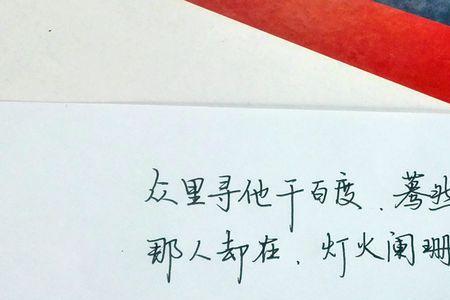 众里寻他千百度，蓦然
那人却在，灯火阑珊